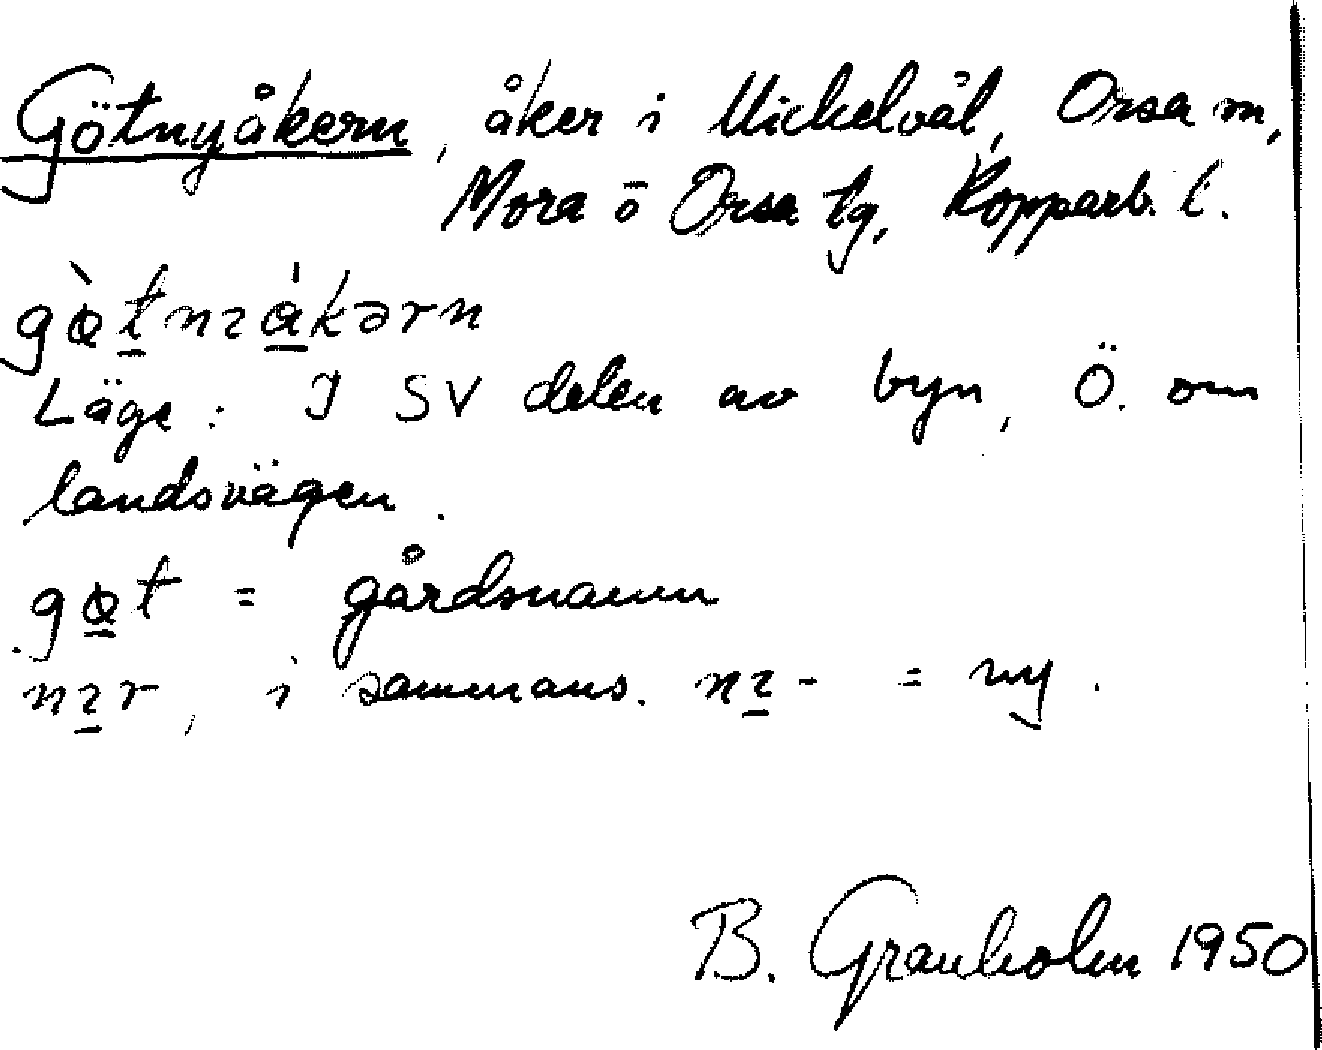 Götnyåkern, åker i Mickelvål, Orsa sn,
Mora o Orsa tg, Kopparb. l.
Läge: I SV delen av byn, Ö. om
landsvägen.
= gårdsnamn
i sammans. = ny.
B. Granholm 1950